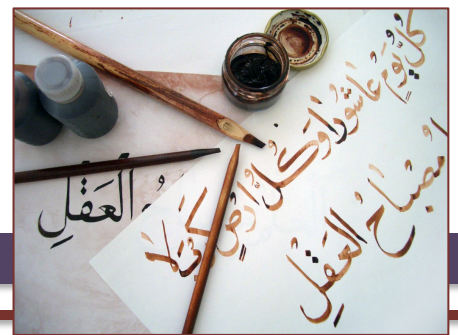 كُلُّ يَوْمٍ عَاشُورَا وَ كُلُّ اَرْضٍ كَربَلا
مصْبَاحُ العَقْلِ
العَقْلِ